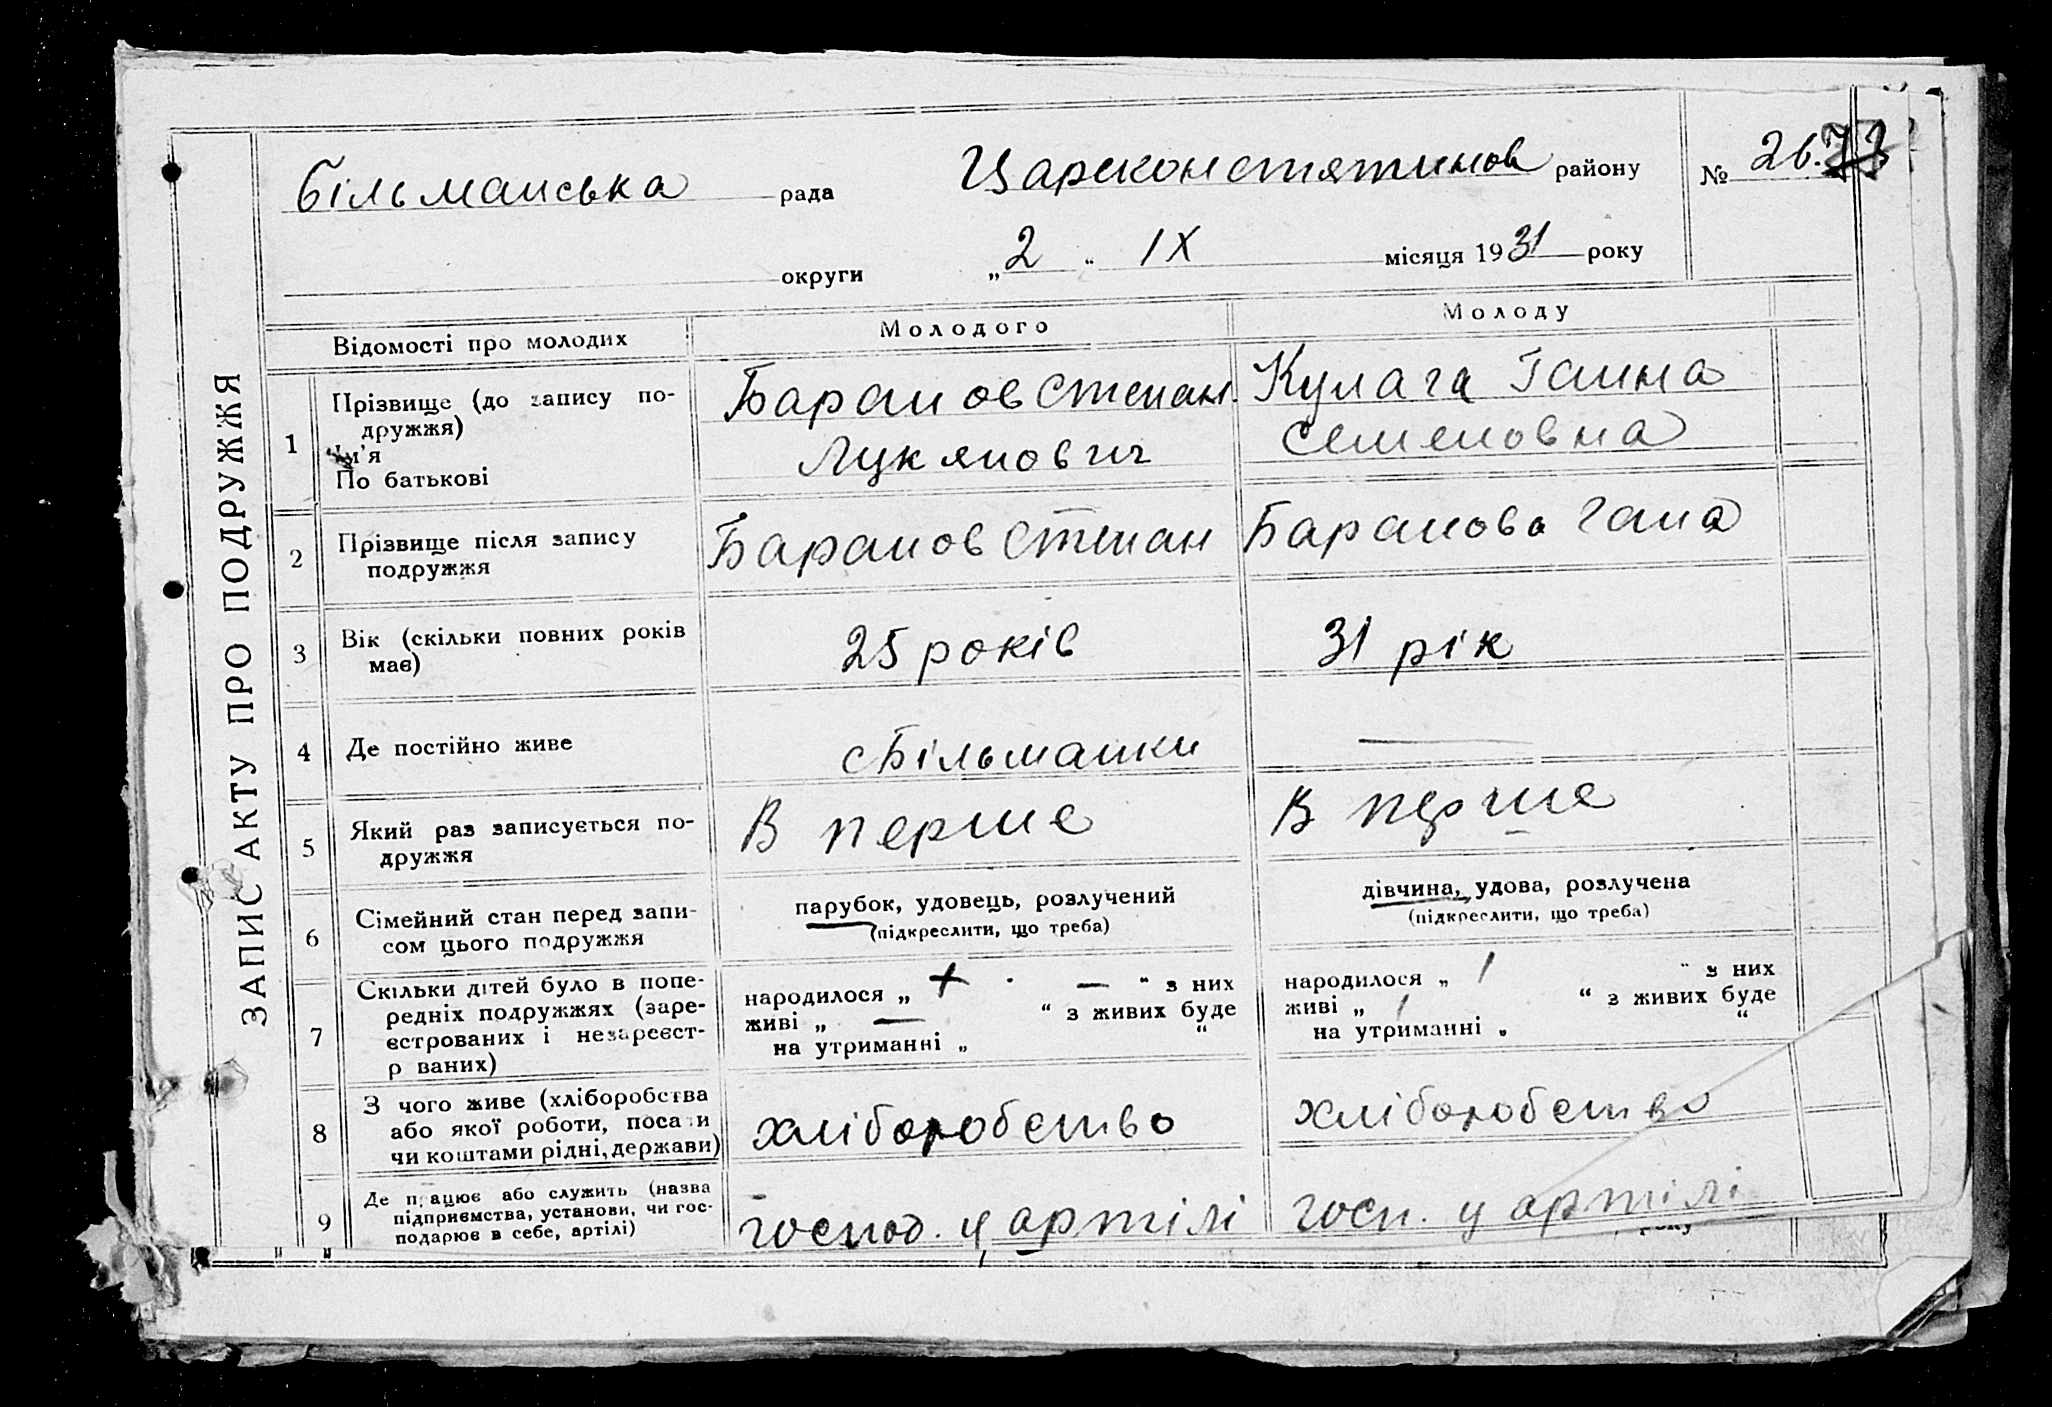 ЗАПИС АКТУ ПРО ПОДРУЖЖЯ
Більманська рада Цареконстятинов району № 26.
округи „2" IX місяця 1931 року
Відомості про молодих Молодого Молоду
1 Прізвище (до запису по-
дружжя)
Ім'я
По батькові
Баранов Степан
Лукянович
Кулага Ганна
Семеновна
2 Прізвище після запису
подружжя
Баранов Степан
Баранова Гана
3 Вік (скільки повних років
має)
25 років
31 рік
4 Де постійно живе
с Більманки
—
5 Який раз записується по-
дружжя
В перше
В перше
6 Сімейний стан перед запи-
сом цього подружжя
парубок, удовець, розлучений
(підкреслити, що треба)
дівчина, удова, розлучена
(підкреслити, що треба)
7 Скільки дітей було в попе-
редніх подружжях (заре-
єстрованих і незареєст-
р ваних)
народилося „ — " з них
живі „ — " з живих буде
на утриманні „ "
народилося „ 1 " з них
живі „ 1 " з живих буде
на утриманні „ "
8 З чого живе (хліборобства
або якої роботи, посади
чи коштами рідні, держави)
хліборобство
хліборобство
9 Де працює або служить (назва
підприємства, установи, чи гос-
подарює в себе, артілі)
господ. у артілі
госп. у артілі
року